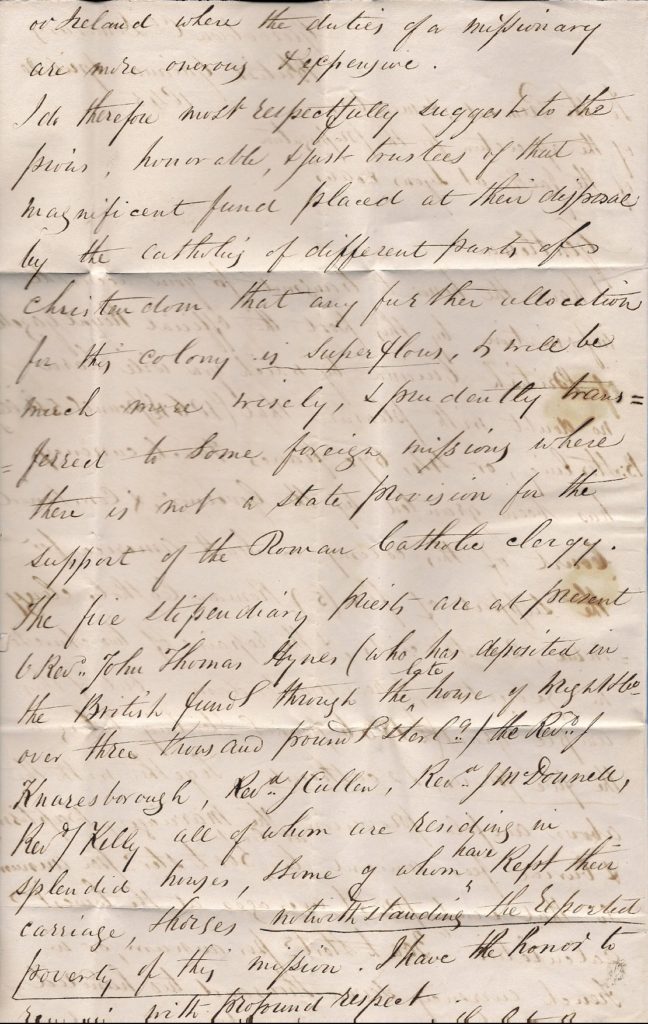 or Ireland where the duties of a missionary
are more onerous & expensive.
I do therefore most respectfully suggest to the
pious, honorable, & just trustees of that
magnificent fund placed at their disposal
by the catholics of different parts of
christendom that any further allocation
for this colony is superflous, & will be
much more wisely, & prudently trans=
=ferred to some foreign missions where
there is not a state provision for the
support of the Roman Catholic clergy.
The five stipendiary priests are at present
Revd. John Thomas Hynes (who has deposited in
the British funds through the late house of Wright & Co
over three thousand pounds sterlg) the Revd J
Knaresborough, Revd J Cullen, Revd J McDonnell,
Revd J Kelly all of whom are residing in
splendid houses, & some of whom have kept their
carriage, & horses notwithstanding the reported
poverty of this mission. I have the honor to
remain with profound respect